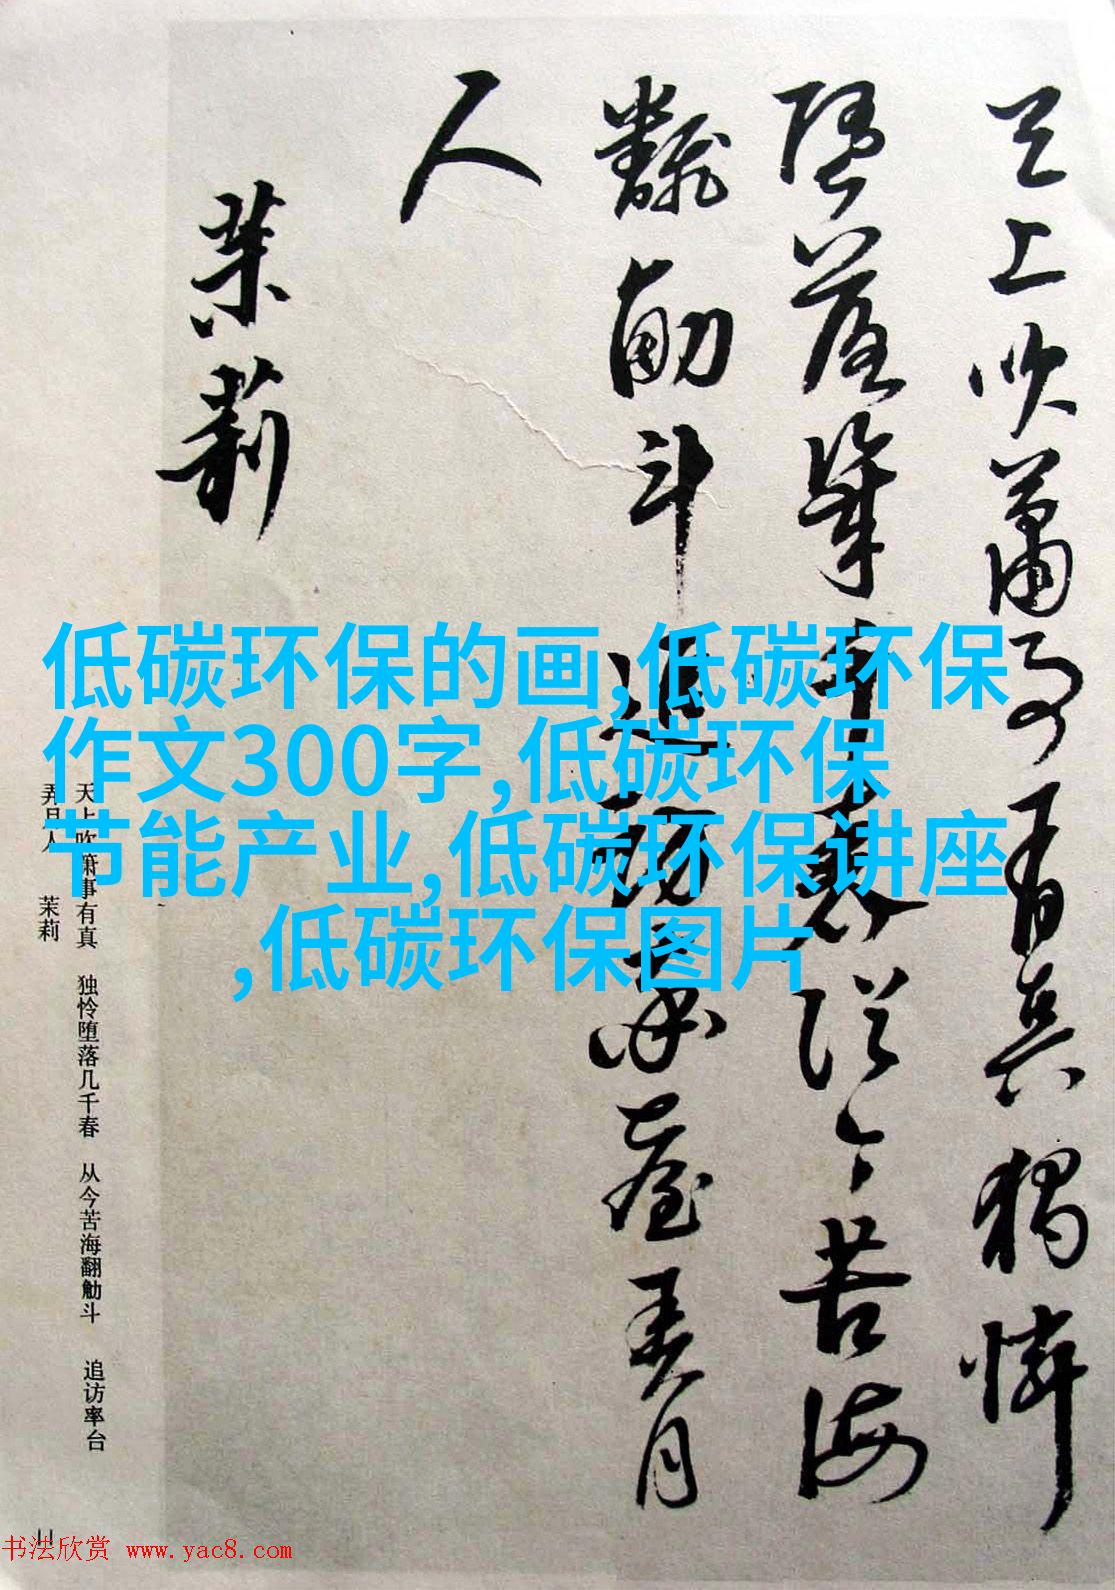 天上吹蕭事有真獨憐
墮落幾千春從今苦海
飜觔斗追訪率臺弄月
人
茉莉
低碳环保的画,低碳环保
作文300字,低碳环保
节能产业,低碳环保讲座
,低碳环保图片
天上吹箫事有真 独怜堕落几千春 从今苦海翻觔斗 追访率台
弄月人 茉莉
11
书法欣赏 www.yac8.com